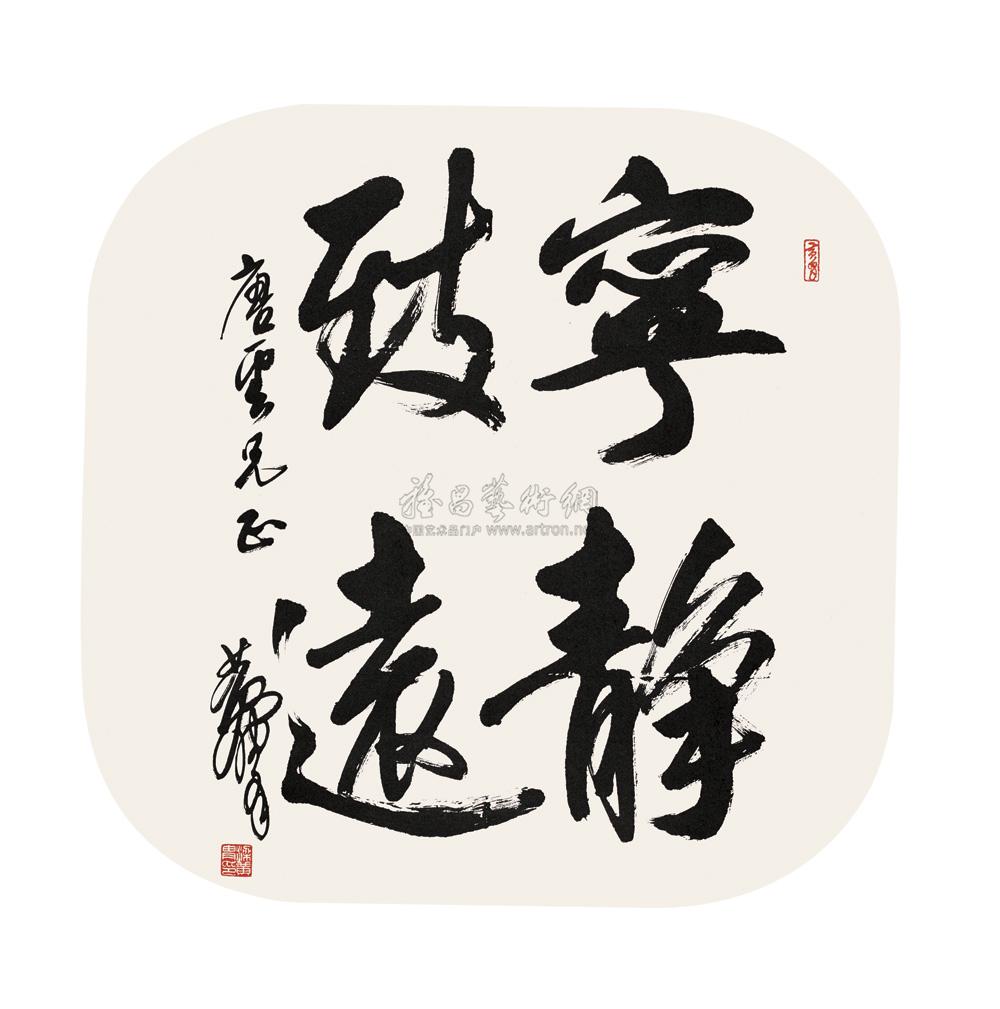 寧靜
致遠
唐雲兄正
雅昌藝術網
中国艺术品门户 www.artron.net